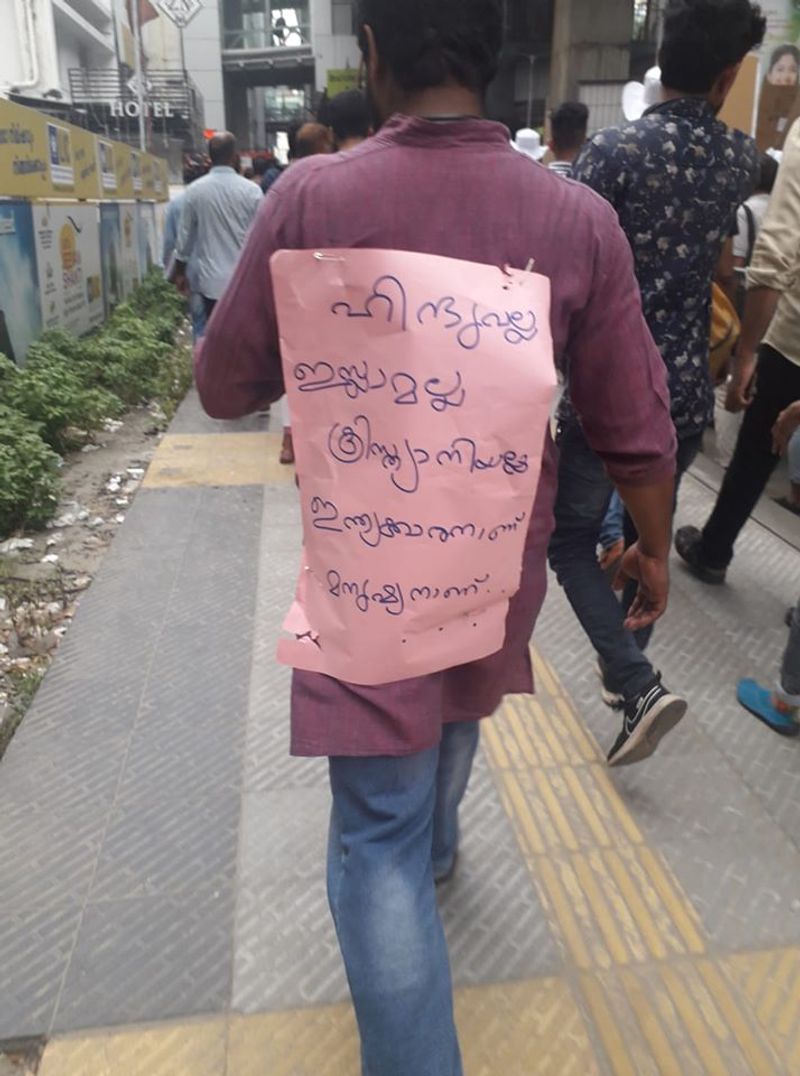 HOTEL
ഹിന്ദുവല്ല
ഇസ്ലാമല്ല
ക്രിസ്ത്യാനിയല്ല
ഇന്ത്യക്കാരനാണ്
മനുഷ്യനാണ്..